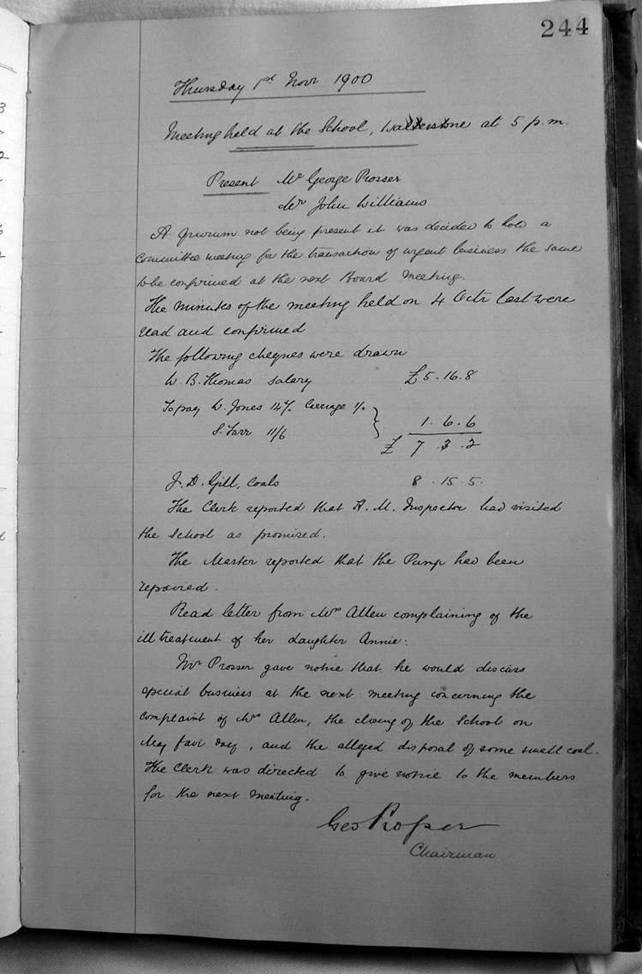 244
Thursday 1st Novr 1900
Meeting held at the School, Walterstone at 5 p.m.
Present Mr George Prosser
Mr John Williams
A Quorum not being present it was decided to hold a
Committee meeting for the transaction of urgent business the same
to be confirmed at the next Board Meeting.
The Minutes of the meeting held on 4 Octr last were
read and confirmed
The following cheques were drawn
W. B. Thomas salary £5.16.8
To pay W. Jones 14/- Carriage 1/-
S. Farr 11/6 } 1.6.6
£ 7.3.2
J. D. Gill, Coals 8.15.5.
The Clerk reported that H. M. Inspector had visited
the School as promised.
The Master reported that the Pump had been
repaired.
Read letter from Mrs Allen complaining of the
ill treatment of her daughter Annie.
Mr Prosser gave notice that he would discuss
special business at the next meeting concerning the
complaint of Mrs Allen, the closing of the School on
May fair day, and the alleged disposal of some small coal.
The Clerk was directed to give notice to the members
for the next meeting.
Geo Prosser
Chairman